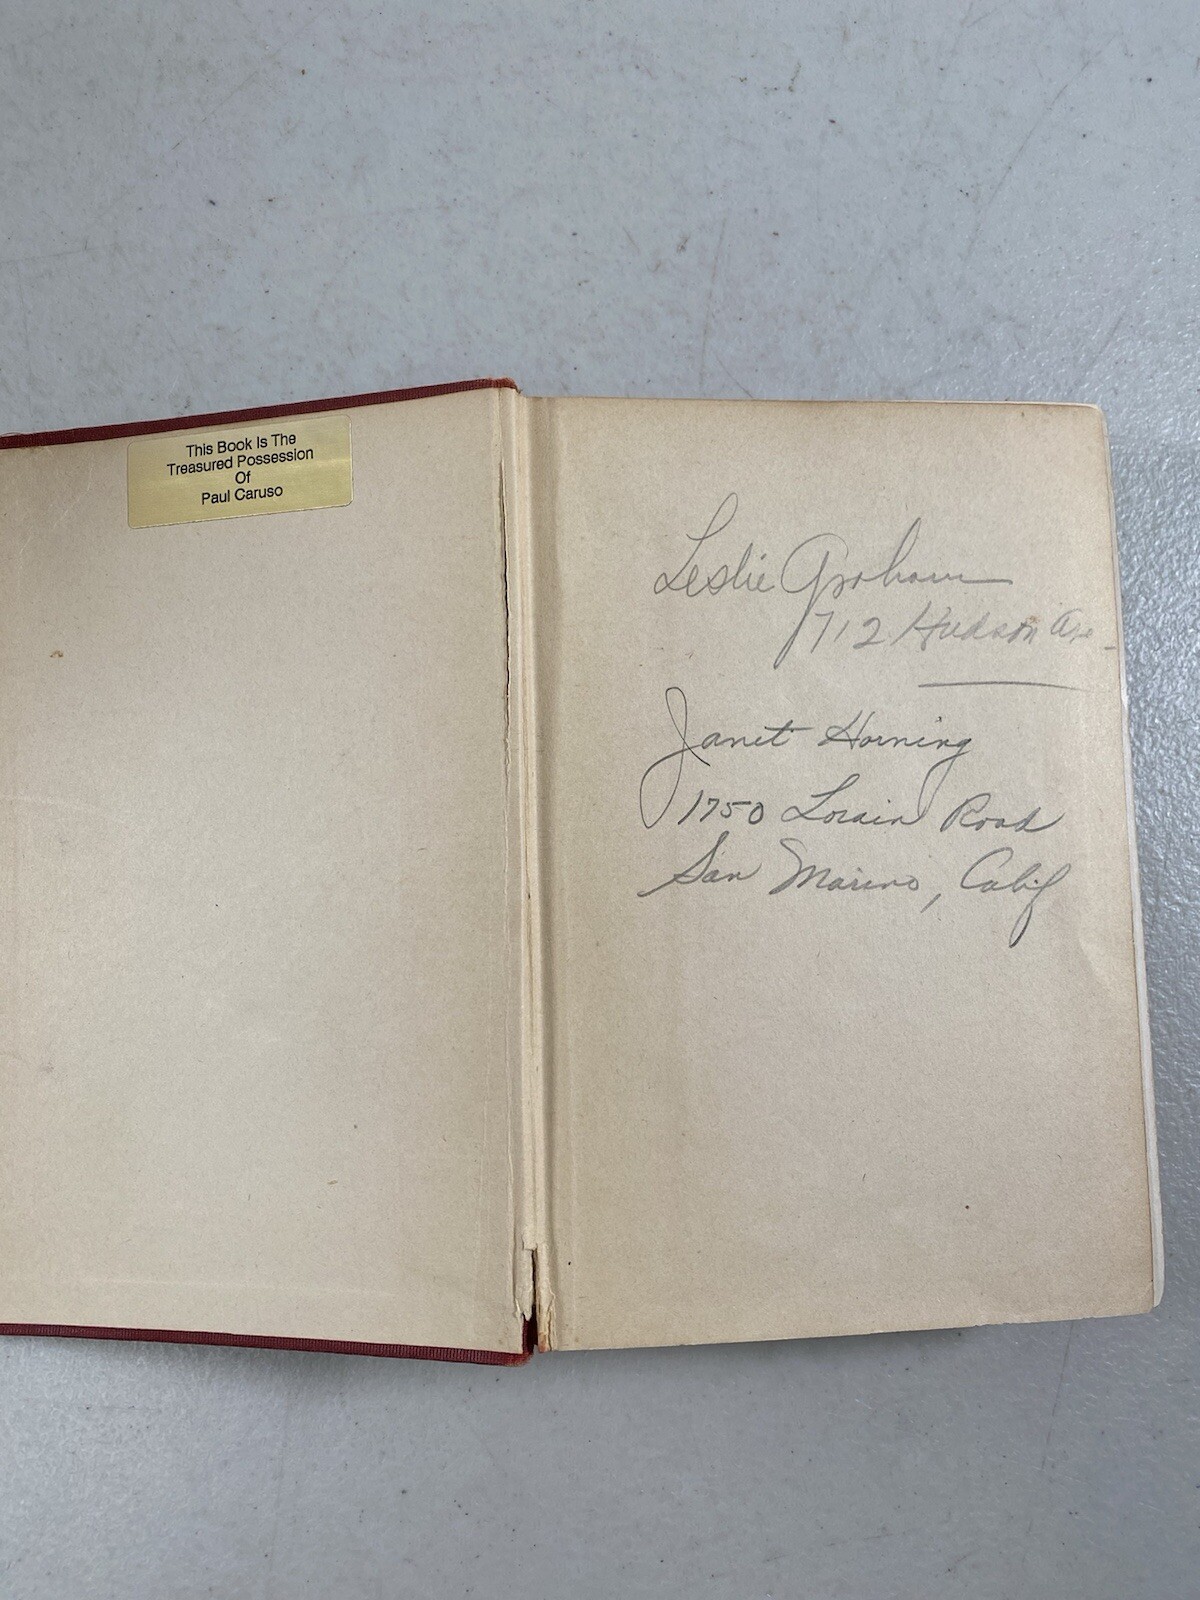 This Book Is The
Treasured Possession
Of
Paul Caruso
Leslie Graham
712 Hudson Ave
Janet Horning
1750 Lorain Road
San Marino, Calif